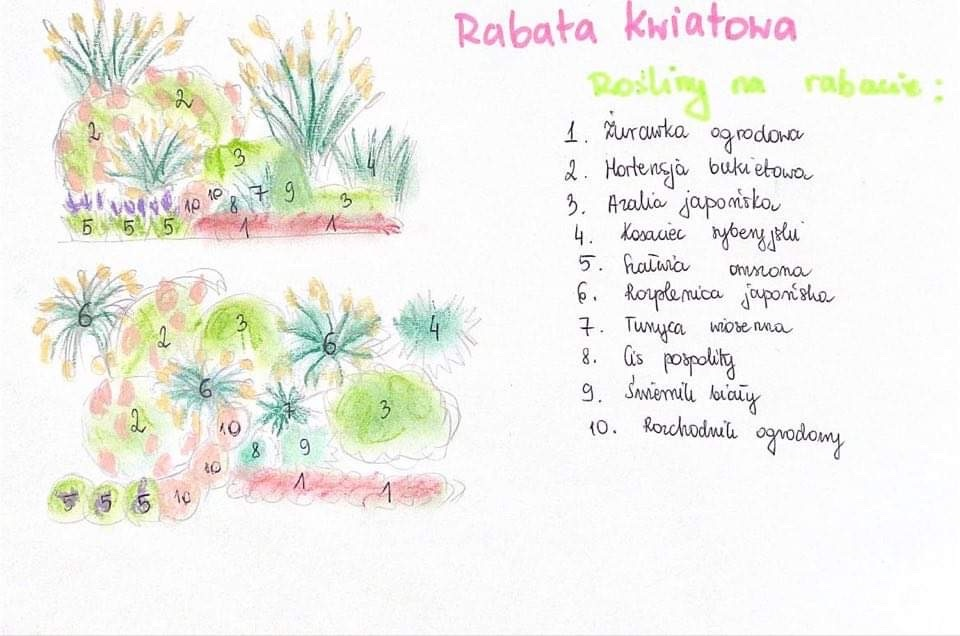 Rabata kwiatowa
Rośliny na rabacie:
1. Żurawka ogrodowa
2. Hortensja bukietowa
3. Azalia japońska
4. Kosaciec syberyjski
5. Szałwia omszona
6. Rozplenica japońska
7. Turzyca wiosenna
8. Cis pospolity
9. Świerk biały
10. Rozchodnik ogrodowy
2
2
3
4
10
10
8
7
9
3
5
5
5
1
1
6
2
3
6
4
6
2
10
7
3
8
9
10
5
5
5
10
1
1